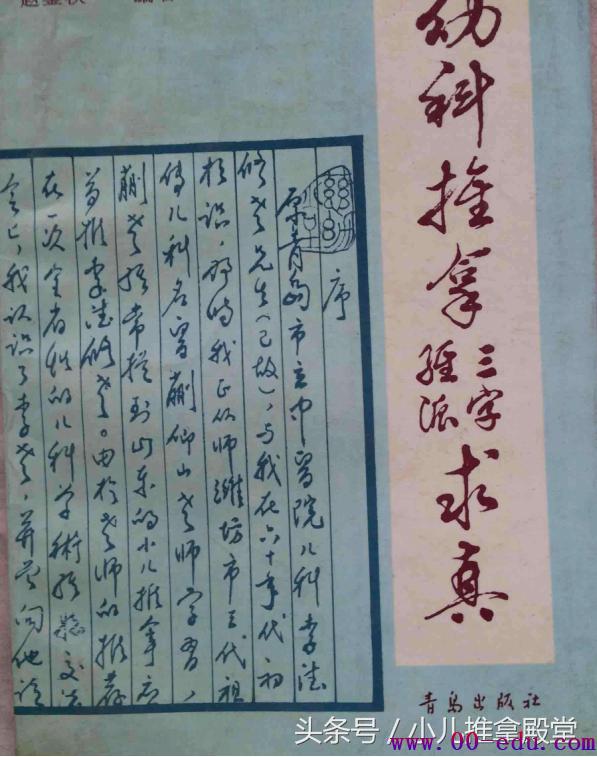 幼科推拿
三字
经派
求真
序
原青岛市立中医院儿科李德
修老先生(已故),与我在六十年代初
相识。那时我正从师潍坊市三代祖
传儿科名医蒯仰山老师学习,
蒯老经常提到山东的小儿推拿应
首推李德修老。由于老师的推荐
在一次全省性的儿科学术经验交流
会上,我认识了李老,并曾向他
青岛出版社
头条号/小儿推拿殿堂
www.00-edu.com